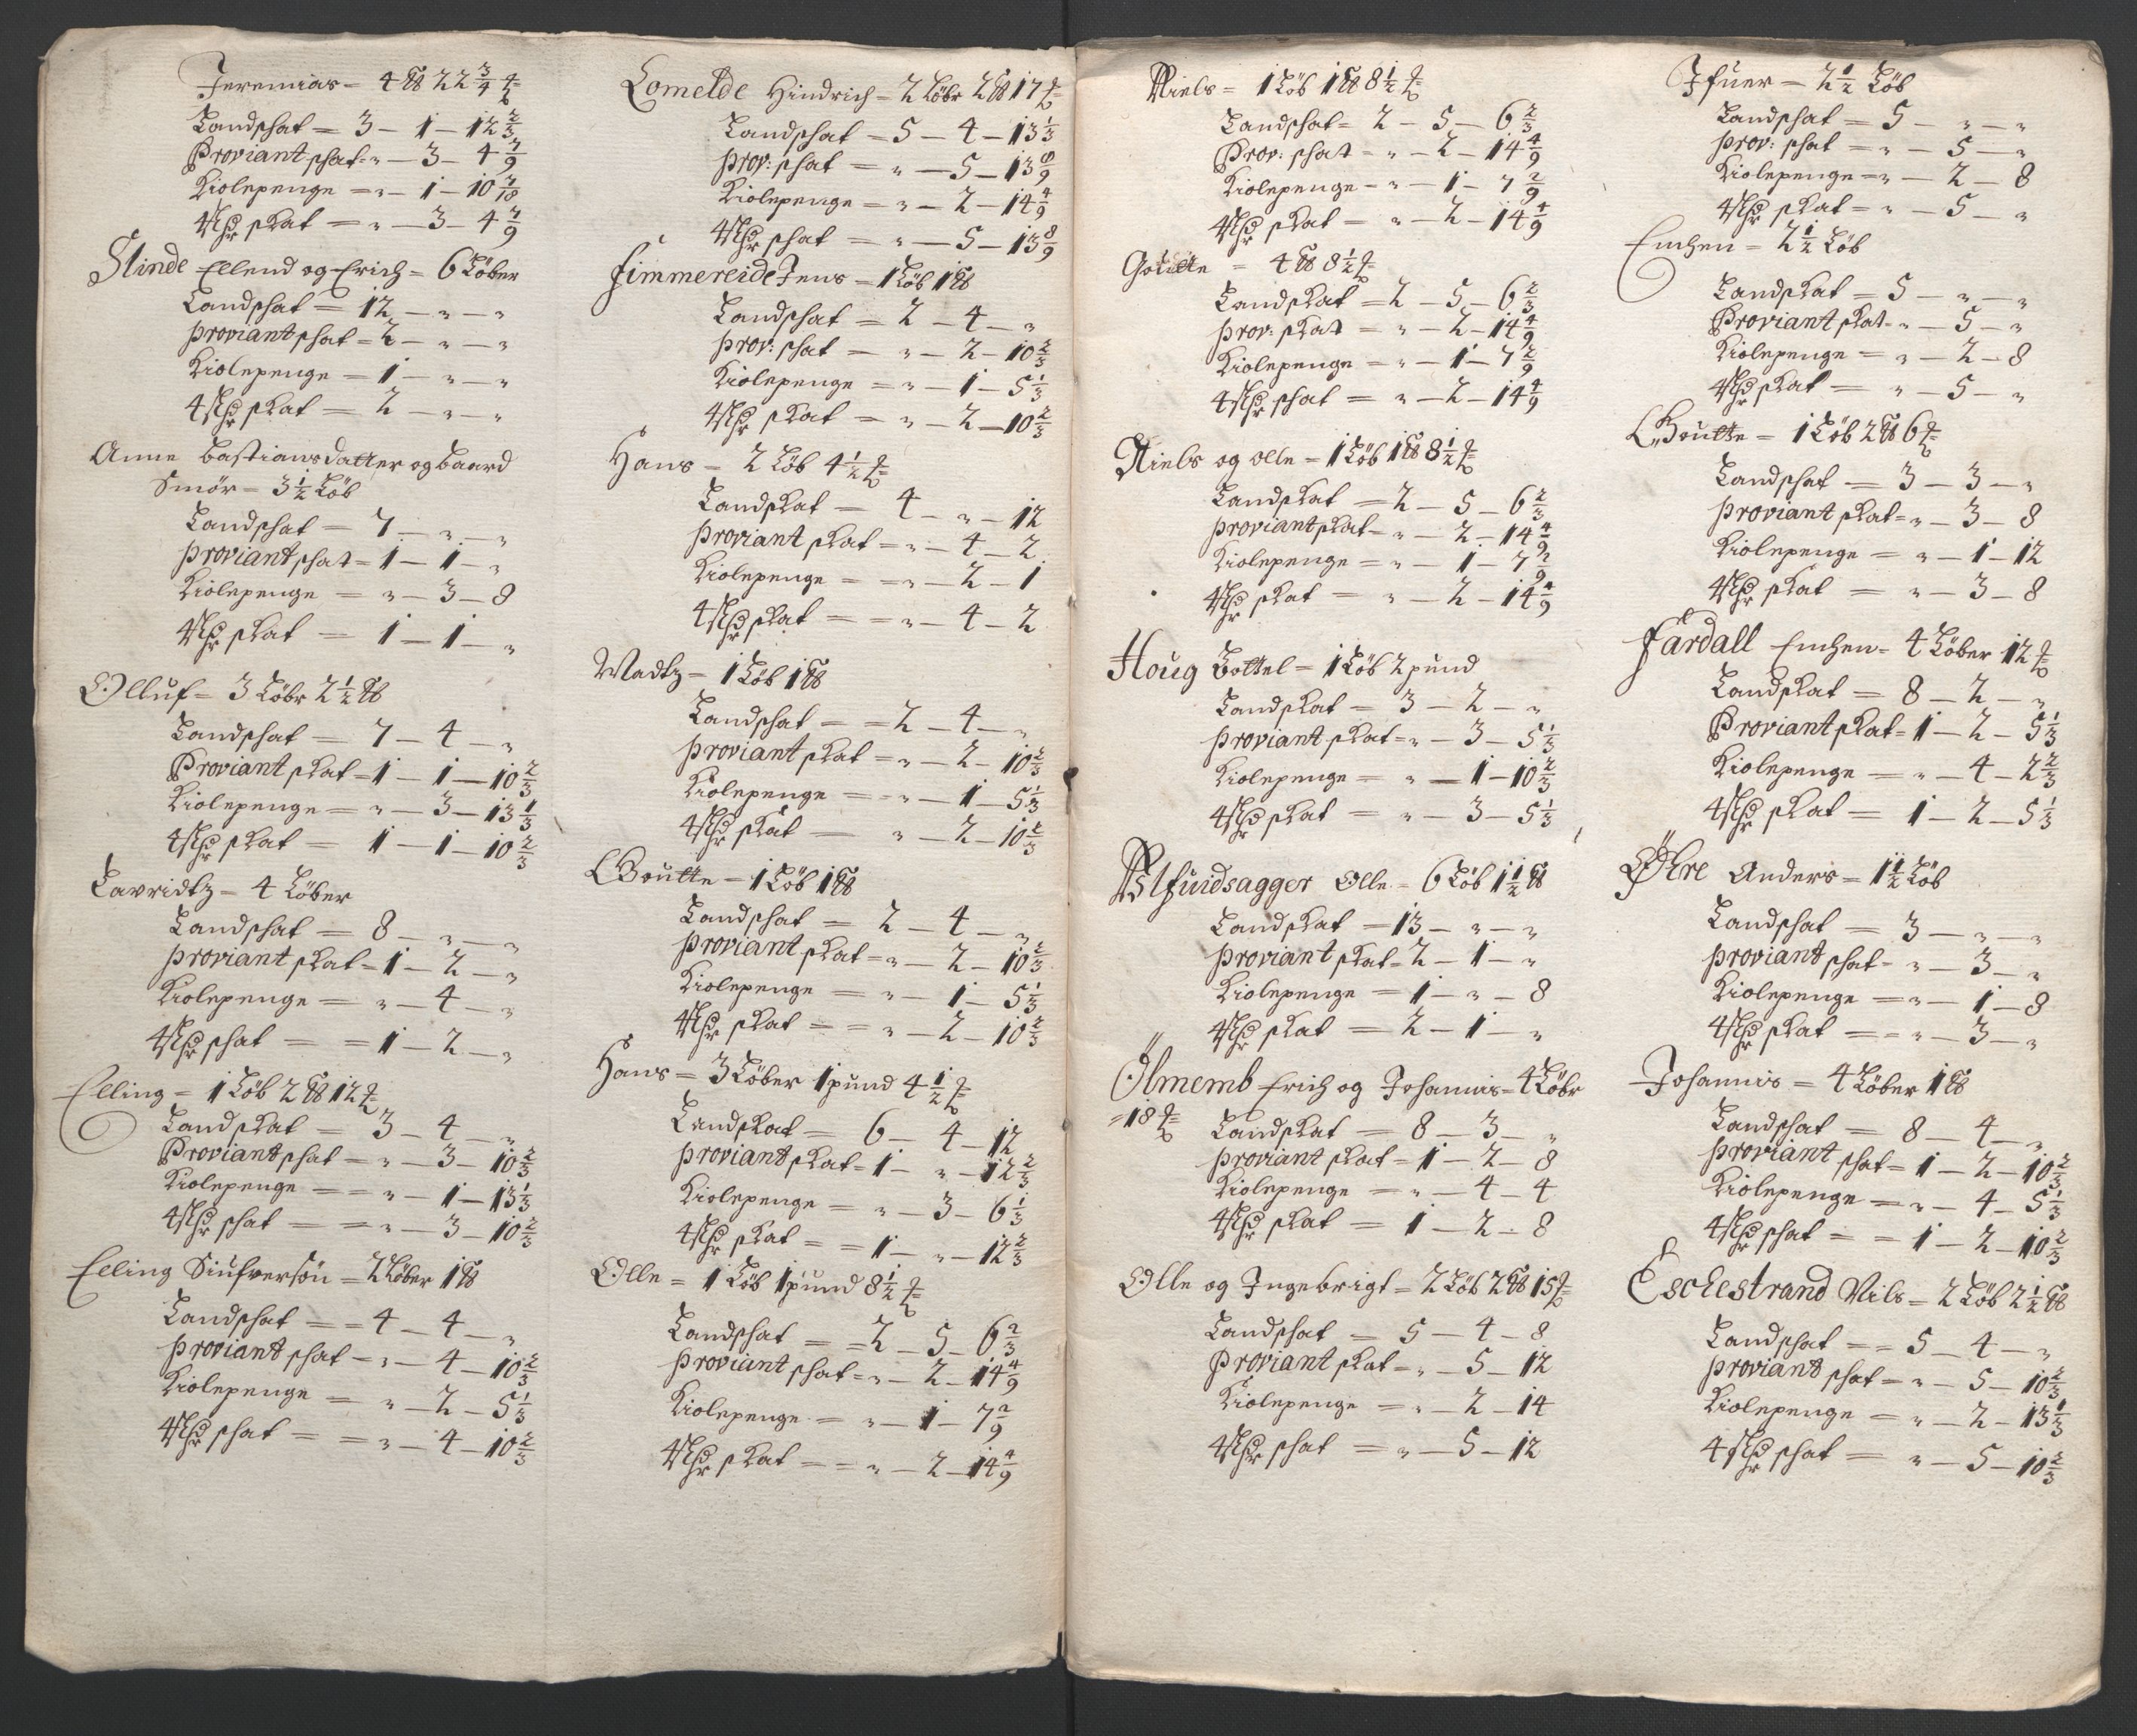 Jeremias = 4 ℔ 22 3/4 ♃
Landschat = 3 — 1 — 12 2/3
Proviant schat = „ — 3 — 4 7/9
Kiolepenge = „ — 1 — 10 7/18
4 Rdr skat = „ — 3 — 4 7/9
Slinde Ellend og Erich = 6 Løber
Landschat = 12 — „ — „
proviant schat = 2 — „ — „
Kiolepenge = 1 — „ — „
4 Rdr skat = 2 — „ — „
Anne bastiansdatter og baard
Smør = 3 1/2 Løb
Landschat = 7 — „ — „
proviant schat = 1 — 1 — „
Kiolepenge = „ — 3 — 8
4 Rdr skat = 1 — 1 — „
Olluf = 3 Løbr 2 1/2 ℔
Landschat = 7 — 4 — „
Proviant skat = 1 — 1 — 10 2/3
Kiolepenge = „ — 3 — 13 1/3
4 Rdr skat = 1 — 1 — 10 2/3
Lavridtz = 4 Løber
Landschat = 8 — „ — „
proviant skat = 1 — 2 — „
Kiolepenge = „ — 4 — „
4 Rdr schat = = 1 — 2 — „
Elling = 1 Løb 2 ℔ 12 ♃
Landskat = 3 — 4 — „
Proviant schat = „ — 3 — 10 2/3
Kiolepenge = = „ — 1 — 13 1/3
4 Rdr schat = = „ — 3 — 10 2/3
Elling Siufversøn = 2 Løber 1 ℔
Landschat = = 4 — 4 — „
proviant schat = „ — 4 — 10 2/3
Kiolepenge = „ — 2 — 5 1/3
4 Rdr schat = = „ — 4 — 10 2/3
Lomelde Hindrich = 2 Løbr 2 ℔ 17 ♃
Landschat = 5 — 4 — 13 1/3
prov: schat = „ — 5 — 13 8/9
Kiolepenge = „ — 2 — 14 4/9
4 Rdr schat = „ — 5 — 13 8/9
fimmereide Jens = 1 Løb 1 ℔
Landschat = 2 — 4 — „
prov: schat = „ — 2 — 10 2/3
Kiolepenge = „ — 1 — 5 1/3
4 Rdr skat = „ — 2 — 10 2/3
Hans = 2 Løb 4 1/2 ♃
Landskat = 4 — „ — 12
proviant skat = „ — 4 — 2
Kiolepenge = = „ — 2 — 1
4 Rdr skat = = „ — 4 — 2
Madtz = 1 Løb 1 ℔
Landschat = = 2 — 4 — „
proviant skat = „ — 2 — 10 2/3
Kiolepenge = = „ — 1 — 5 1/3
4 Rdr skat = „ — 2 — 10 2/3
Goutte = 1 Løb 1 ℔
Landschat = 2 — 4 — „
proviant skat = „ — 2 — 10 2/3
Kiolepenge = „ — 1 — 5 1/3
4 Rdr skat = = „ — 2 — 10 2/3
Hans = 3 Løber 1 pund 4 1/2 ♃
Landskat = 6 — 4 — 12
proviant skat = 1 — „ — 12 2/3
Kiolepenge = „ — 3 — 6 1/3
4 Rdr skat = = 1 — „ — 12 2/3
Olle = 1 Løb 1 pund 8 1/2 ♃
Landschat = = 2 — 5 — 6 2/3
proviant schat = „ — 2 — 14 4/9
Kiolepenge = „ — 1 — 7 2/9
4 Rdr skat = = „ — 2 — 14 4/9
Niels = 1 Løb 1 ℔ 8 1/2 ♃
Landschat = 2 — 5 — 6 2/3
Prov: schat = „ — 2 — 14 4/9
Kiolepenge = „ — 1 — 7 2/9
4 Rdr skat = „ — 2 — 14 4/9
Goutte = 4 ℔ 8 1/2 ♃
Landskat = 2 — 5 — 6 2/3
prov: skat = „ — 2 — 14 4/9
Kiolepenge = „ — 1 — 7 2/9
4 Rdr schat = „ — 2 — 14 4/9
Niels og olle = 1 Løb 1 ℔ 8 1/2 ♃
Landskat = 2 — 5 — 6 2/3
proviant skat = „ — 2 — 14 4/9
Kiolepenge = „ — 1 — 7 2/9
4 Rdr skat = „ — 2 — 14 4/9
Houg Bottel = 1 Løb 2 pund
Landskat = 3 — 2 — „
proviant skat = „ — 3 — 5 1/3
Kiolepenge = „ — 1 — 10 2/3
4 Rdr skat = „ — 3 — 5 1/3
Alfuidsagger Olle = 6 Løb 1 1/2 ℔
Landskat = 13 — „ — „
proviant skat = 2 — 1 — „
Kiolepenge = 1 — „ — 8
4 Rdr skat = 2 — 1 — „
Ölmemb Erich og Johannis = 4 Løbr
= 18 ♃ Landskat = 8 — 3 — „
proviant skat = 1 — 2 — 8
Kiolepenge = „ — 4 — 4
4 Rdr skat = 1 — 2 — 8
Olle og Ingebrigt = 2 Løb 2 ℔ 15 ♃
Landschat = 5 — 4 — 8
proviant skat = „ — 5 — 12
Kiolepenge = „ — 2 — 14
4 Rdr schat = „ — 5 — 12
Ifuer = 2 1/2 Løb
Landschat = 5 — „ — „
prov: schat = „ — 5 — „
Kiolepenge = „ — 2 — 8
4 Rdr skat = „ — 5 — „
Einchen = 2 1/2 Løb
Landskat = 5 — „ — „
Proviant skat = „ — 5 — „
Kiolepenge = „ — 2 — 8
4 Rdr skat = „ — 5 — „
Goutte = 1 Løb 2 ℔ 6 ♃
Landschat = 3 — 3 — „
proviant skat = „ — 3 — 8
Kiolepenge = „ — 1 — 12
4 Rdr skat = „ — 3 — 8
fardall Einchen = 4 Løber 12 ♃
Landskat = 8 — 2 — „
Proviant skat = 1 — 2 — 5 1/3
Kiolepenge = „ — 4 — 2 2/3
4 Rdr skat = 1 — 2 — 5 1/3
Øhre Anders = 1 1/2 Løb
Landschat = 3 — „ — „
proviant schat = „ — 3 — „
Kiolepenge = „ — 1 — 8
4 Rdr skat = = „ — 3 — „
Johannis = 4 Løber 1 ℔
Landschat = 8 — 4 — „
proviant schat = 1 — 2 — 10 2/3
Kiolepenge = „ — 4 — 5 1/3
4 Rdr schat = = 1 — 2 — 10 2/3
Eschestrand Nils = 2 Løb 2 1/2 ℔
Landschat = = 5 — 4 — „
proviant schat = „ — 5 — 10 2/3
Kiolepenge = „ — 2 — 13 1/3
4 Rdr schat = „ — 5 — 10 2/3